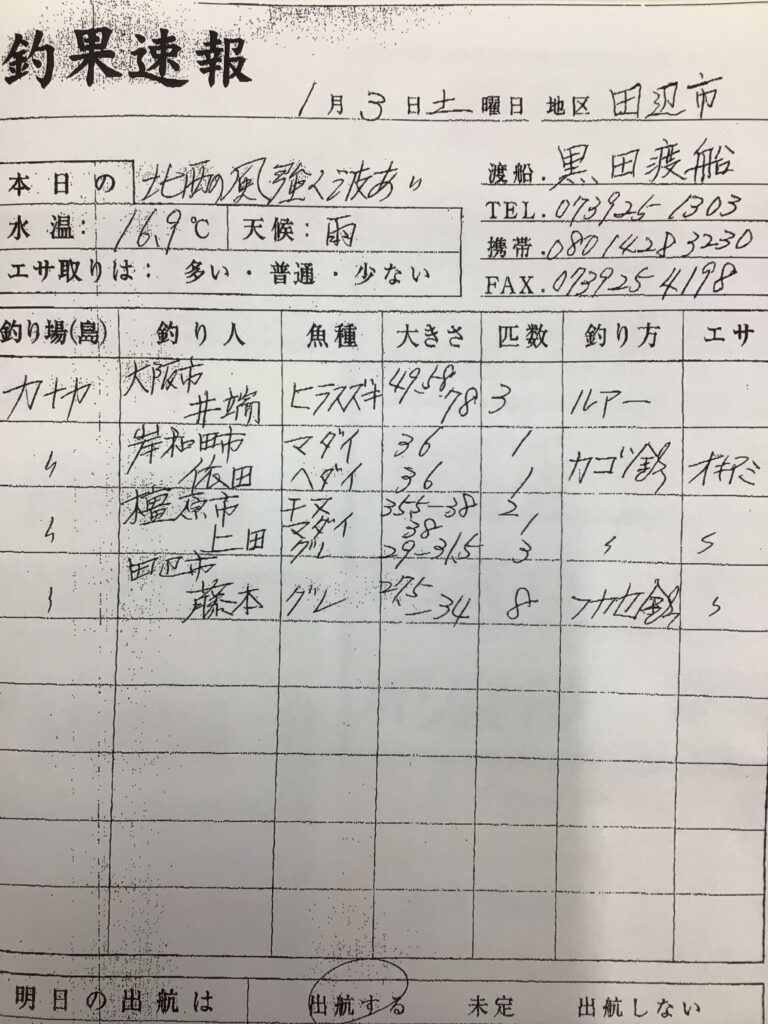 釣果速報
1月3日土曜日 地区 田辺市
本日の 北西の風強く波あり
渡船.黒田渡船
水温: 16.9℃ 天候: 雨
TEL.073925 1303
携帯.080 1428 3230
エサ取りは: 多い・普通・少ない
FAX.073925 4198
釣り場(島) 釣り人 魚種 大きさ 匹数 釣り方 エサ
大阪市 49.58
井端 ヒラスズキ 78 3 ルアー
岸和田市 マダイ 36 1
〃 依田 ヘダイ 36 1 カゴツ釣 オキアミ
橿原市 チヌ 35.5-38 2
マダイ 38 1
〃 上田 グレ 29-31.5 3 〃 〃
田辺市 27.5
〃 藤本 グレ -34 8 フカセ釣 〃
明日の出航は 出航する 未定 出航しない